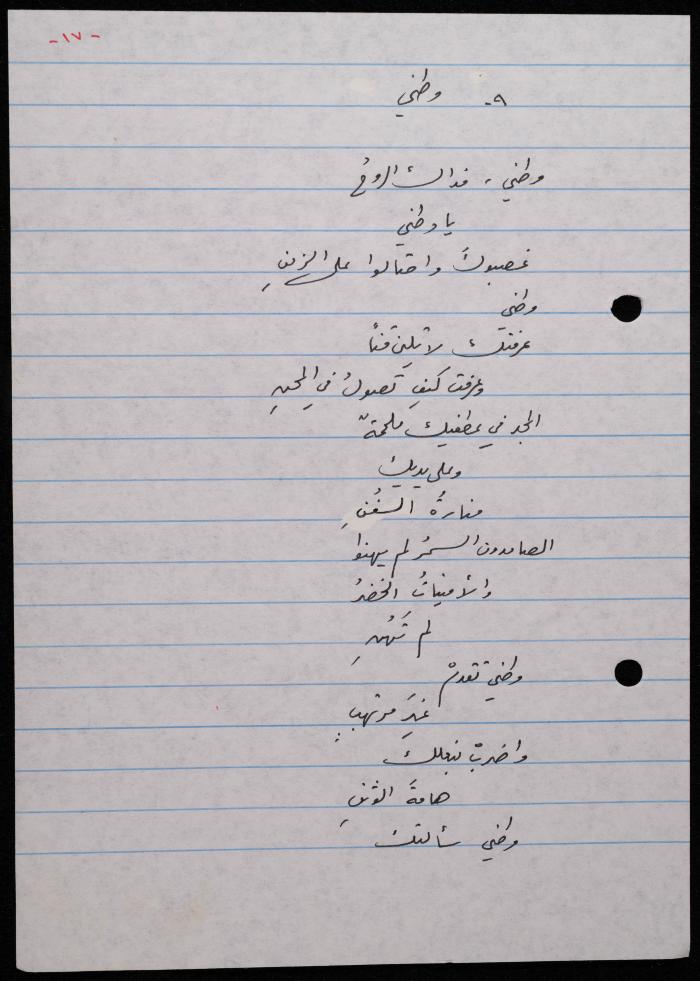 -١٧-
٩- وطني
وطني، فداك الروحُ
يا وطني
غصبوكَ واحتالوا على الزمنِ
وطني
عرفتك لا تلين قناً
وعرفت كيف تصولُ في المحنِ
المجد في عطفيك ملحمةٌ
وعلى يديك
منارةُ السفُنِ
الصامدون السمرُ لم يهنوا
والأمنياتُ الخضرُ
لم تَهُنِ
وطني تقدمْ
غيرَ مرتهبٍ
واضربْ بنعلك
هامةَ الوثنِ
وطني سألتك